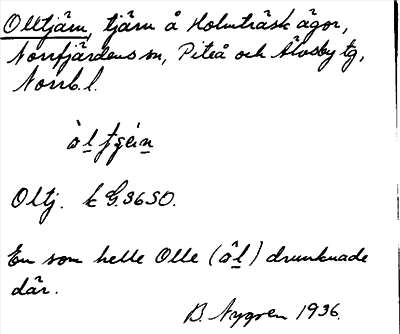 Olltjärn, tjärn å Holmträsk ägor,
Norrfjärdens sn, Piteå och Älvsby tg,
Norrb. l.
Oltj. k G. 3650.
En som hette Olle (ål) drunknade
där.
B. Nygren 1936.